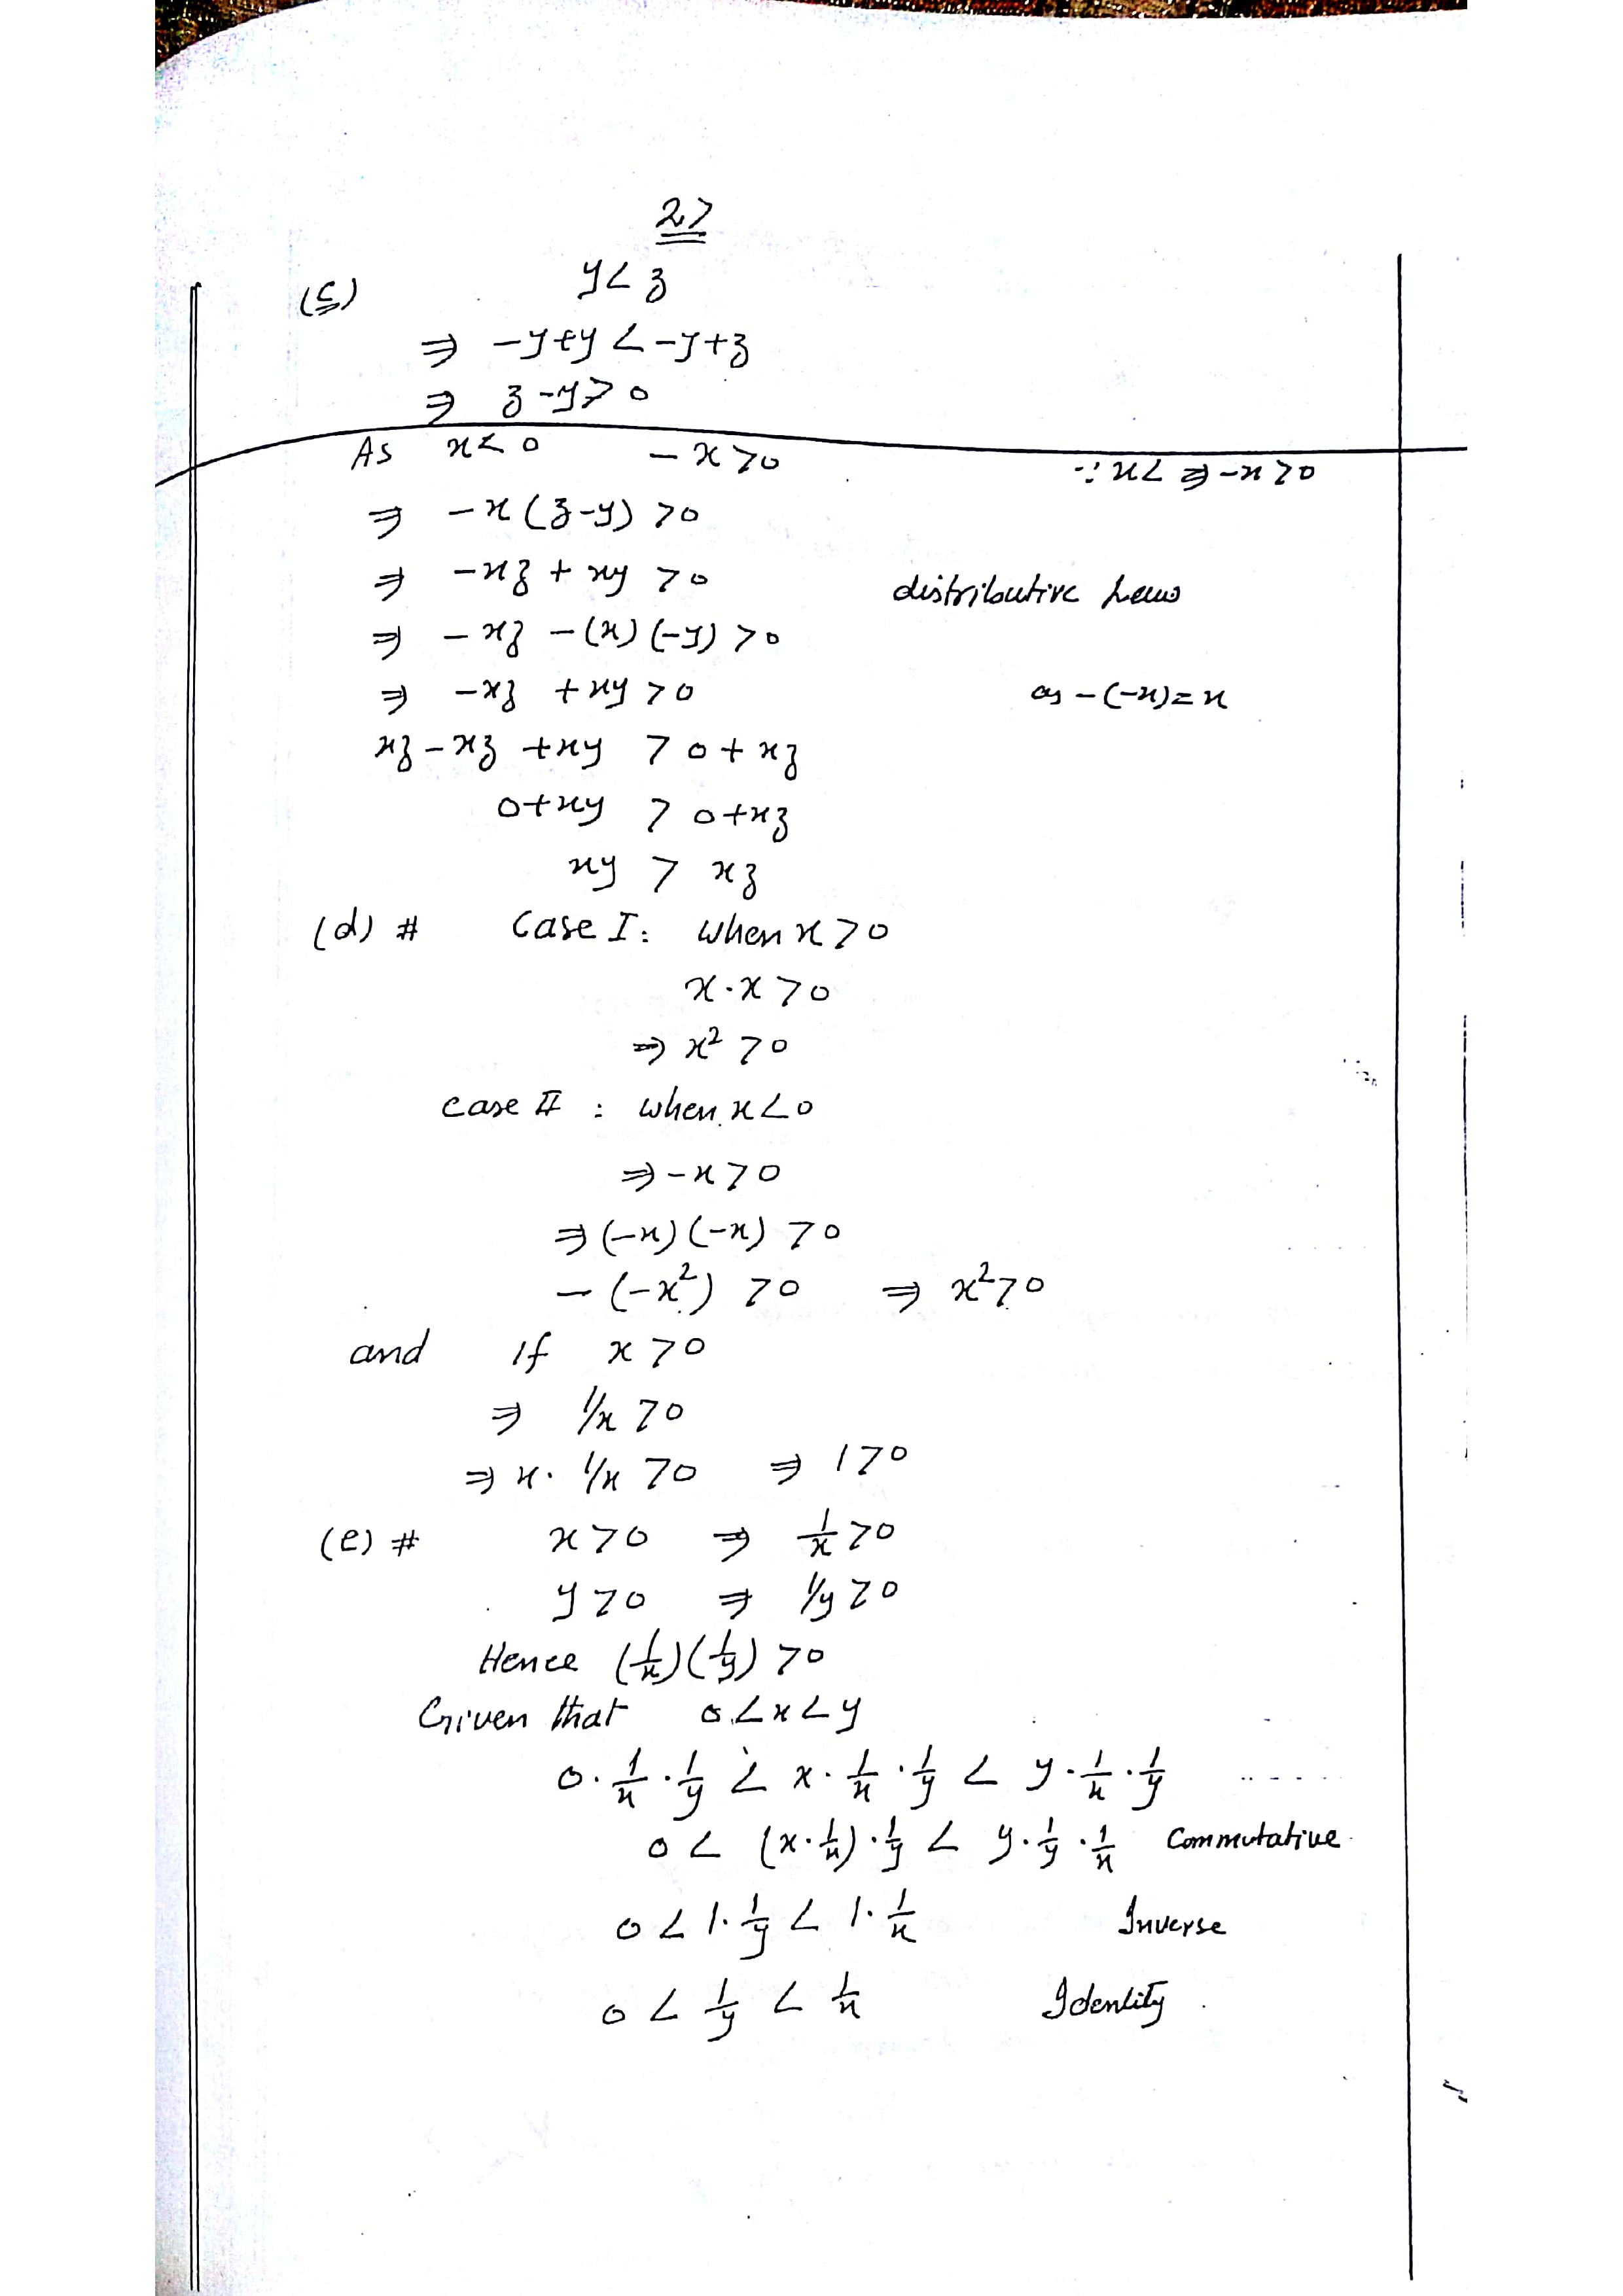 27
(c) y < z
⇒ -y+y < -y+z
⇒ z-y > 0
As x < 0 -x > 0 ∵ x < ⇒ -x > 0
⇒ -x(z-y) > 0
⇒ -xz + xy > 0 distributive Laws
⇒ -xz -(x)(-y) > 0
⇒ -xz + xy > 0 as -(-x) = x
xz - xz + xy > 0 + xz
0+xy > 0+xz
xy > xz
(d) # Case I: when x > 0
x·x > 0
⇒ x² > 0
case II : when x < 0
⇒ -x > 0
⇒ (-x)(-x) > 0
-(-x²) > 0 ⇒ x² > 0
and If x > 0
⇒ 1/x > 0
⇒ x. 1/x > 0 ⇒ 1 > 0
(e) # x > 0 ⇒ 1/x > 0
y > 0 ⇒ 1/y > 0
Hence (1/x)(1/y) > 0
Given that 0 < x < y
0·1/x·1/y < x·1/x·1/y < y·1/x·1/y ......
0 < (x·1/x)·1/y < y·1/y·1/x Commutative
0 < 1·1/y < 1·1/x Inverse
0 < 1/y < 1/x Identity.